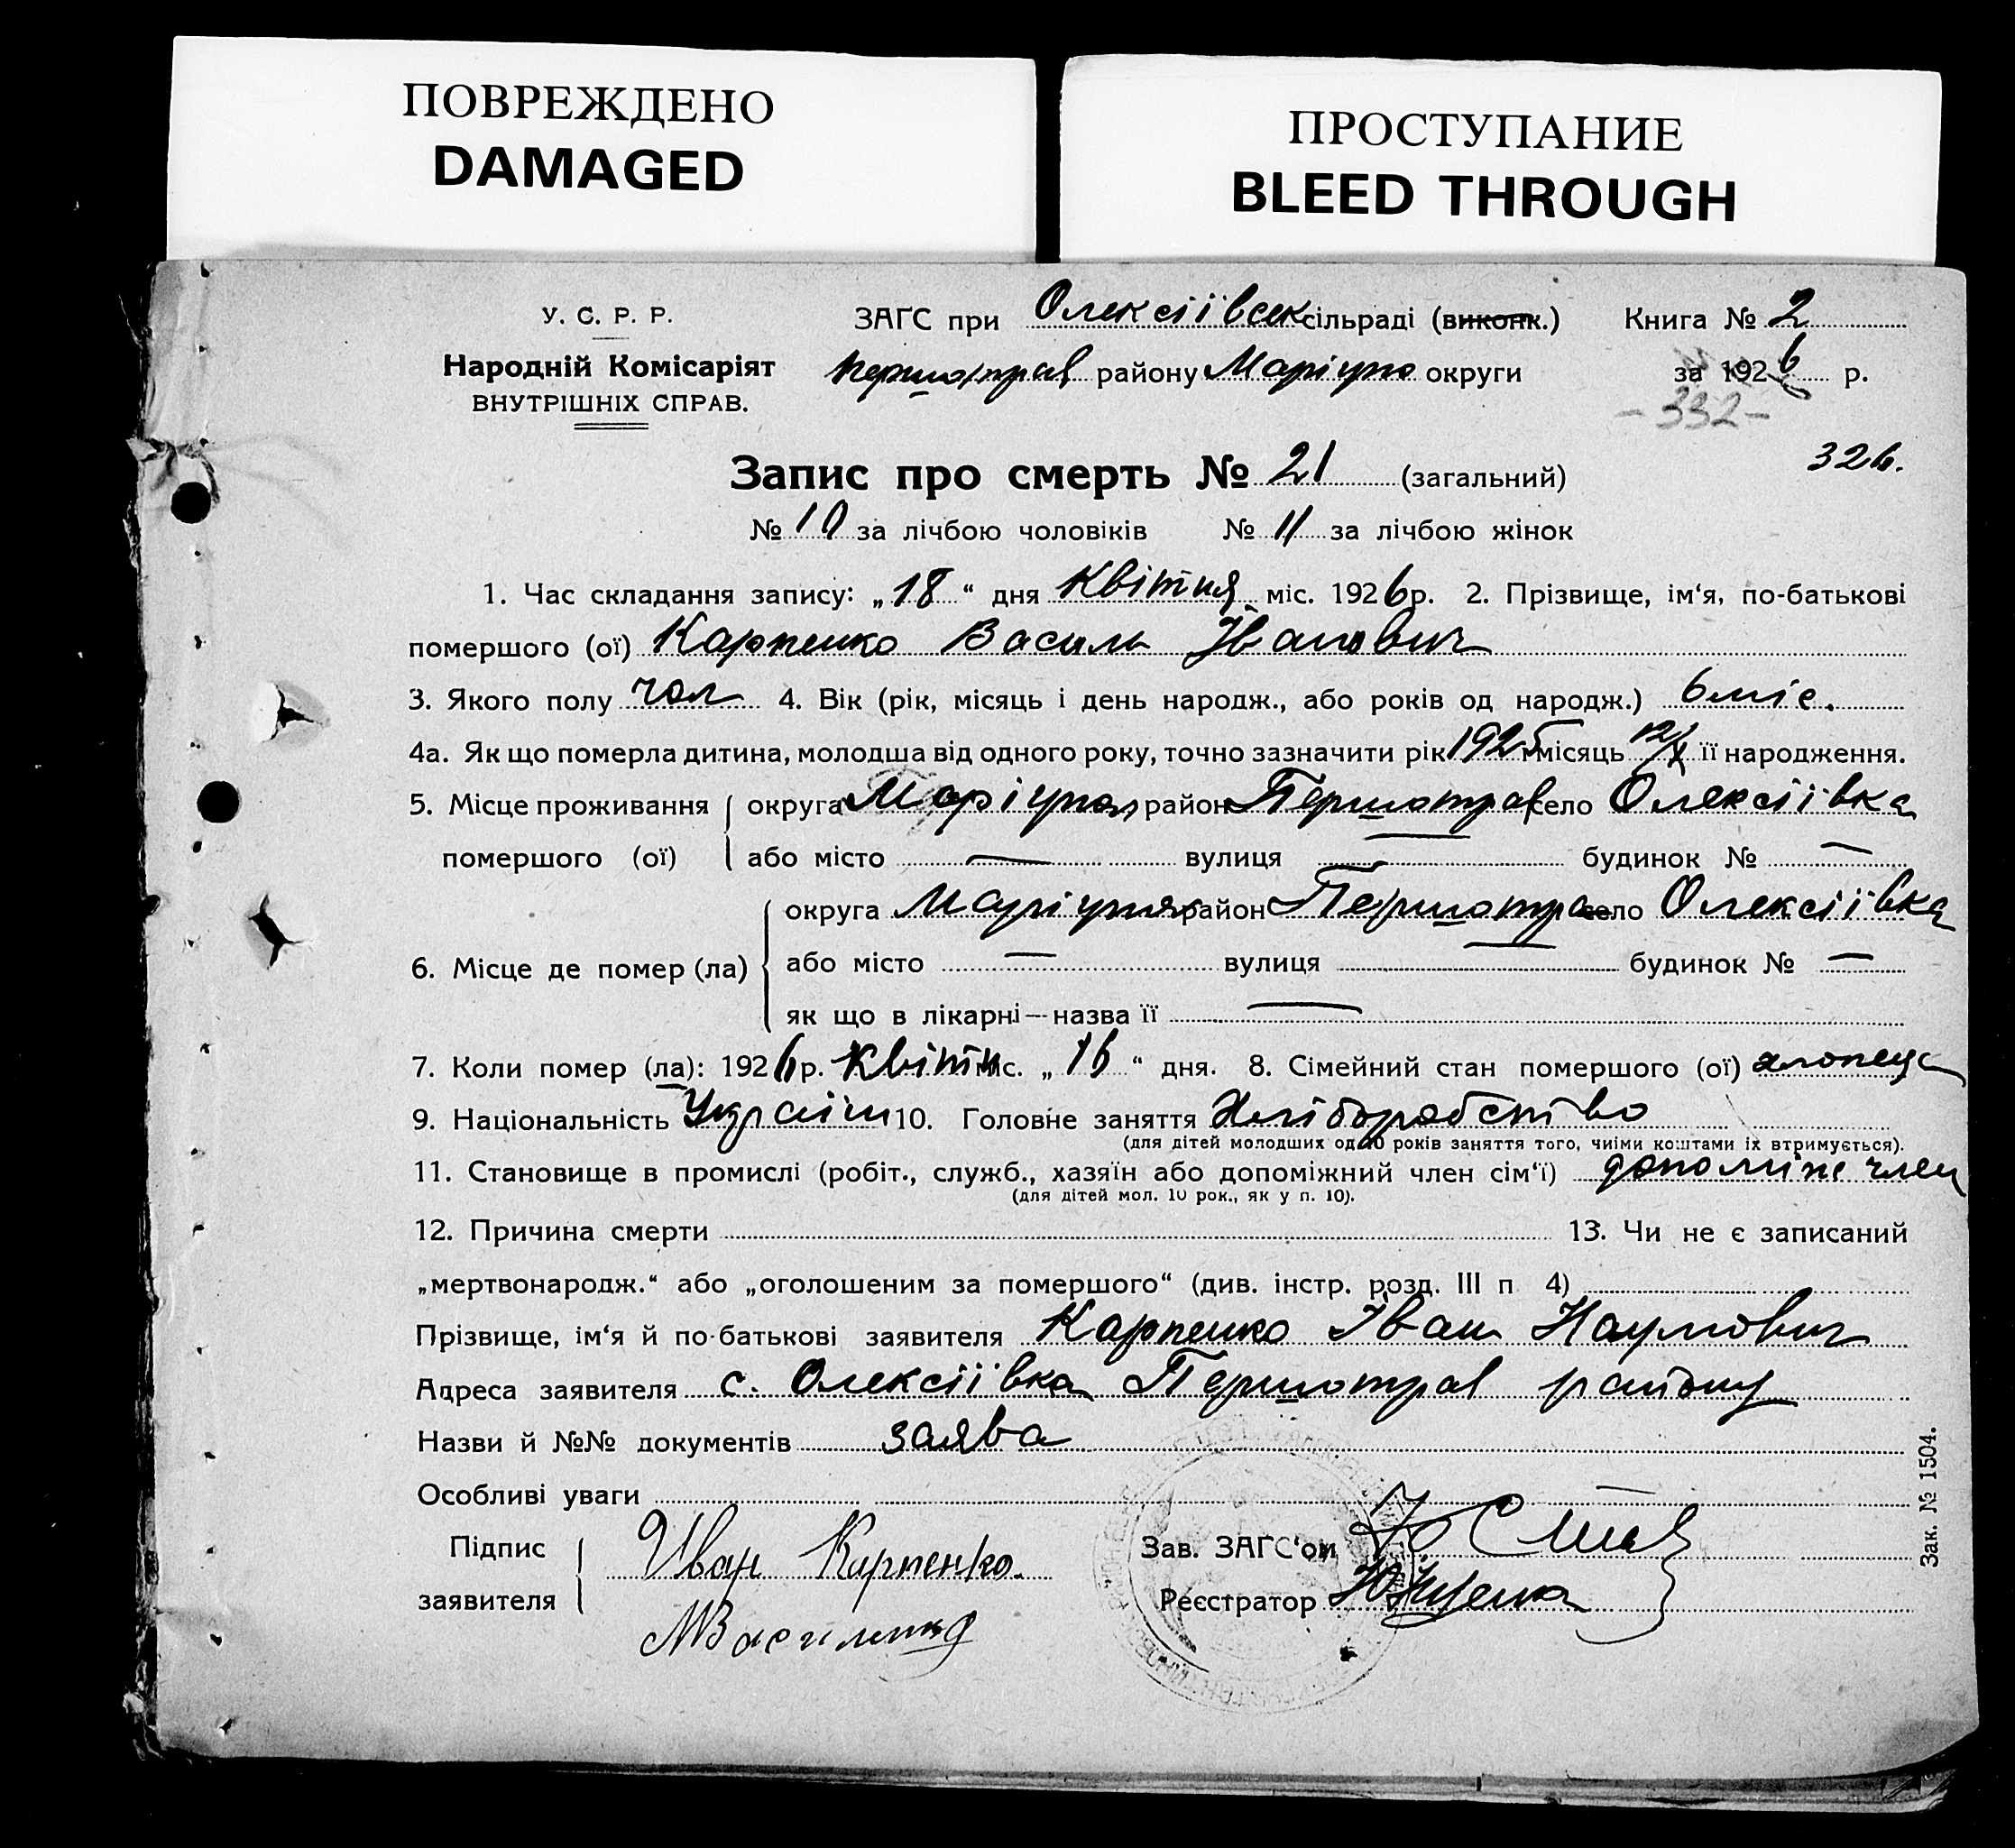 ПОВРЕЖДЕНО
DAMAGED
ПРОСТУПАНИЕ
BLEED THROUGH
У. С. Р. Р.
Народній Комісаріят
ВНУТРІШНІХ СПРАВ.
ЗАГС при Олексіївсек сільраді (виконк.)
Першотрав району Маріупо округи
Книга № 2
за 1926 р.
- 332 -
326.
Запис про смерть № 21 (загальний)
№ 10 за лічбою чоловіків № 11 за лічбою жінок
1. Час складання запису: „18“ дня Квітня міс. 1926 р. 2. Прізвище, ім‘я, по-батькові
помершого (ої) Карпенко Василь Іванович
3. Якого полу чол 4. Вік (рік, місяць і день народж., або років од народж.) 6 міс.
4а. Як що померла дитина, молодша від одного року, точно зазначити рік 1925 місяць 12/X її народження.
5. Місце проживання помершого (ої) округа Маріупол район Першотрав село Олексіївка
або місто — вулиця — будинок № —
6. Місце де помер (ла) округа Маріупол район Першотра село Олексіївка
або місто — вулиця — будинок № —
як що в лікарні — назва її —
7. Коли помер (ла): 1926 р. Квітн міс. „16“ дня. 8. Сімейний стан помершого (ої) хлопець
9. Національність Україн 10. Головне заняття Хліборобство
(для дітей молодших од 10 років заняття того, чиїми коштами їх втримується).
11. Становище в промислі (робіт., служб., хазяїн або допоміжний член сім‘ї) допоміж член
(для дітей мол. 10 рок., як у п. 10).
12. Причина смерти 13. Чи не є записаний
„мертвонародж.“ або „оголошеним за помершого“ (див. інстр. розд. III п 4)
Прізвище, ім‘я й по-батькові заявителя Карпенко Іван Наумович
Адреса заявителя с. Олексіївка Першотрав району
Назви й №№ документів заява
Особливі уваги
Підпис заявителя Иван Карпенко.
Зав. ЗАГС‘ом
Реєстратор
Зак. № 1504.